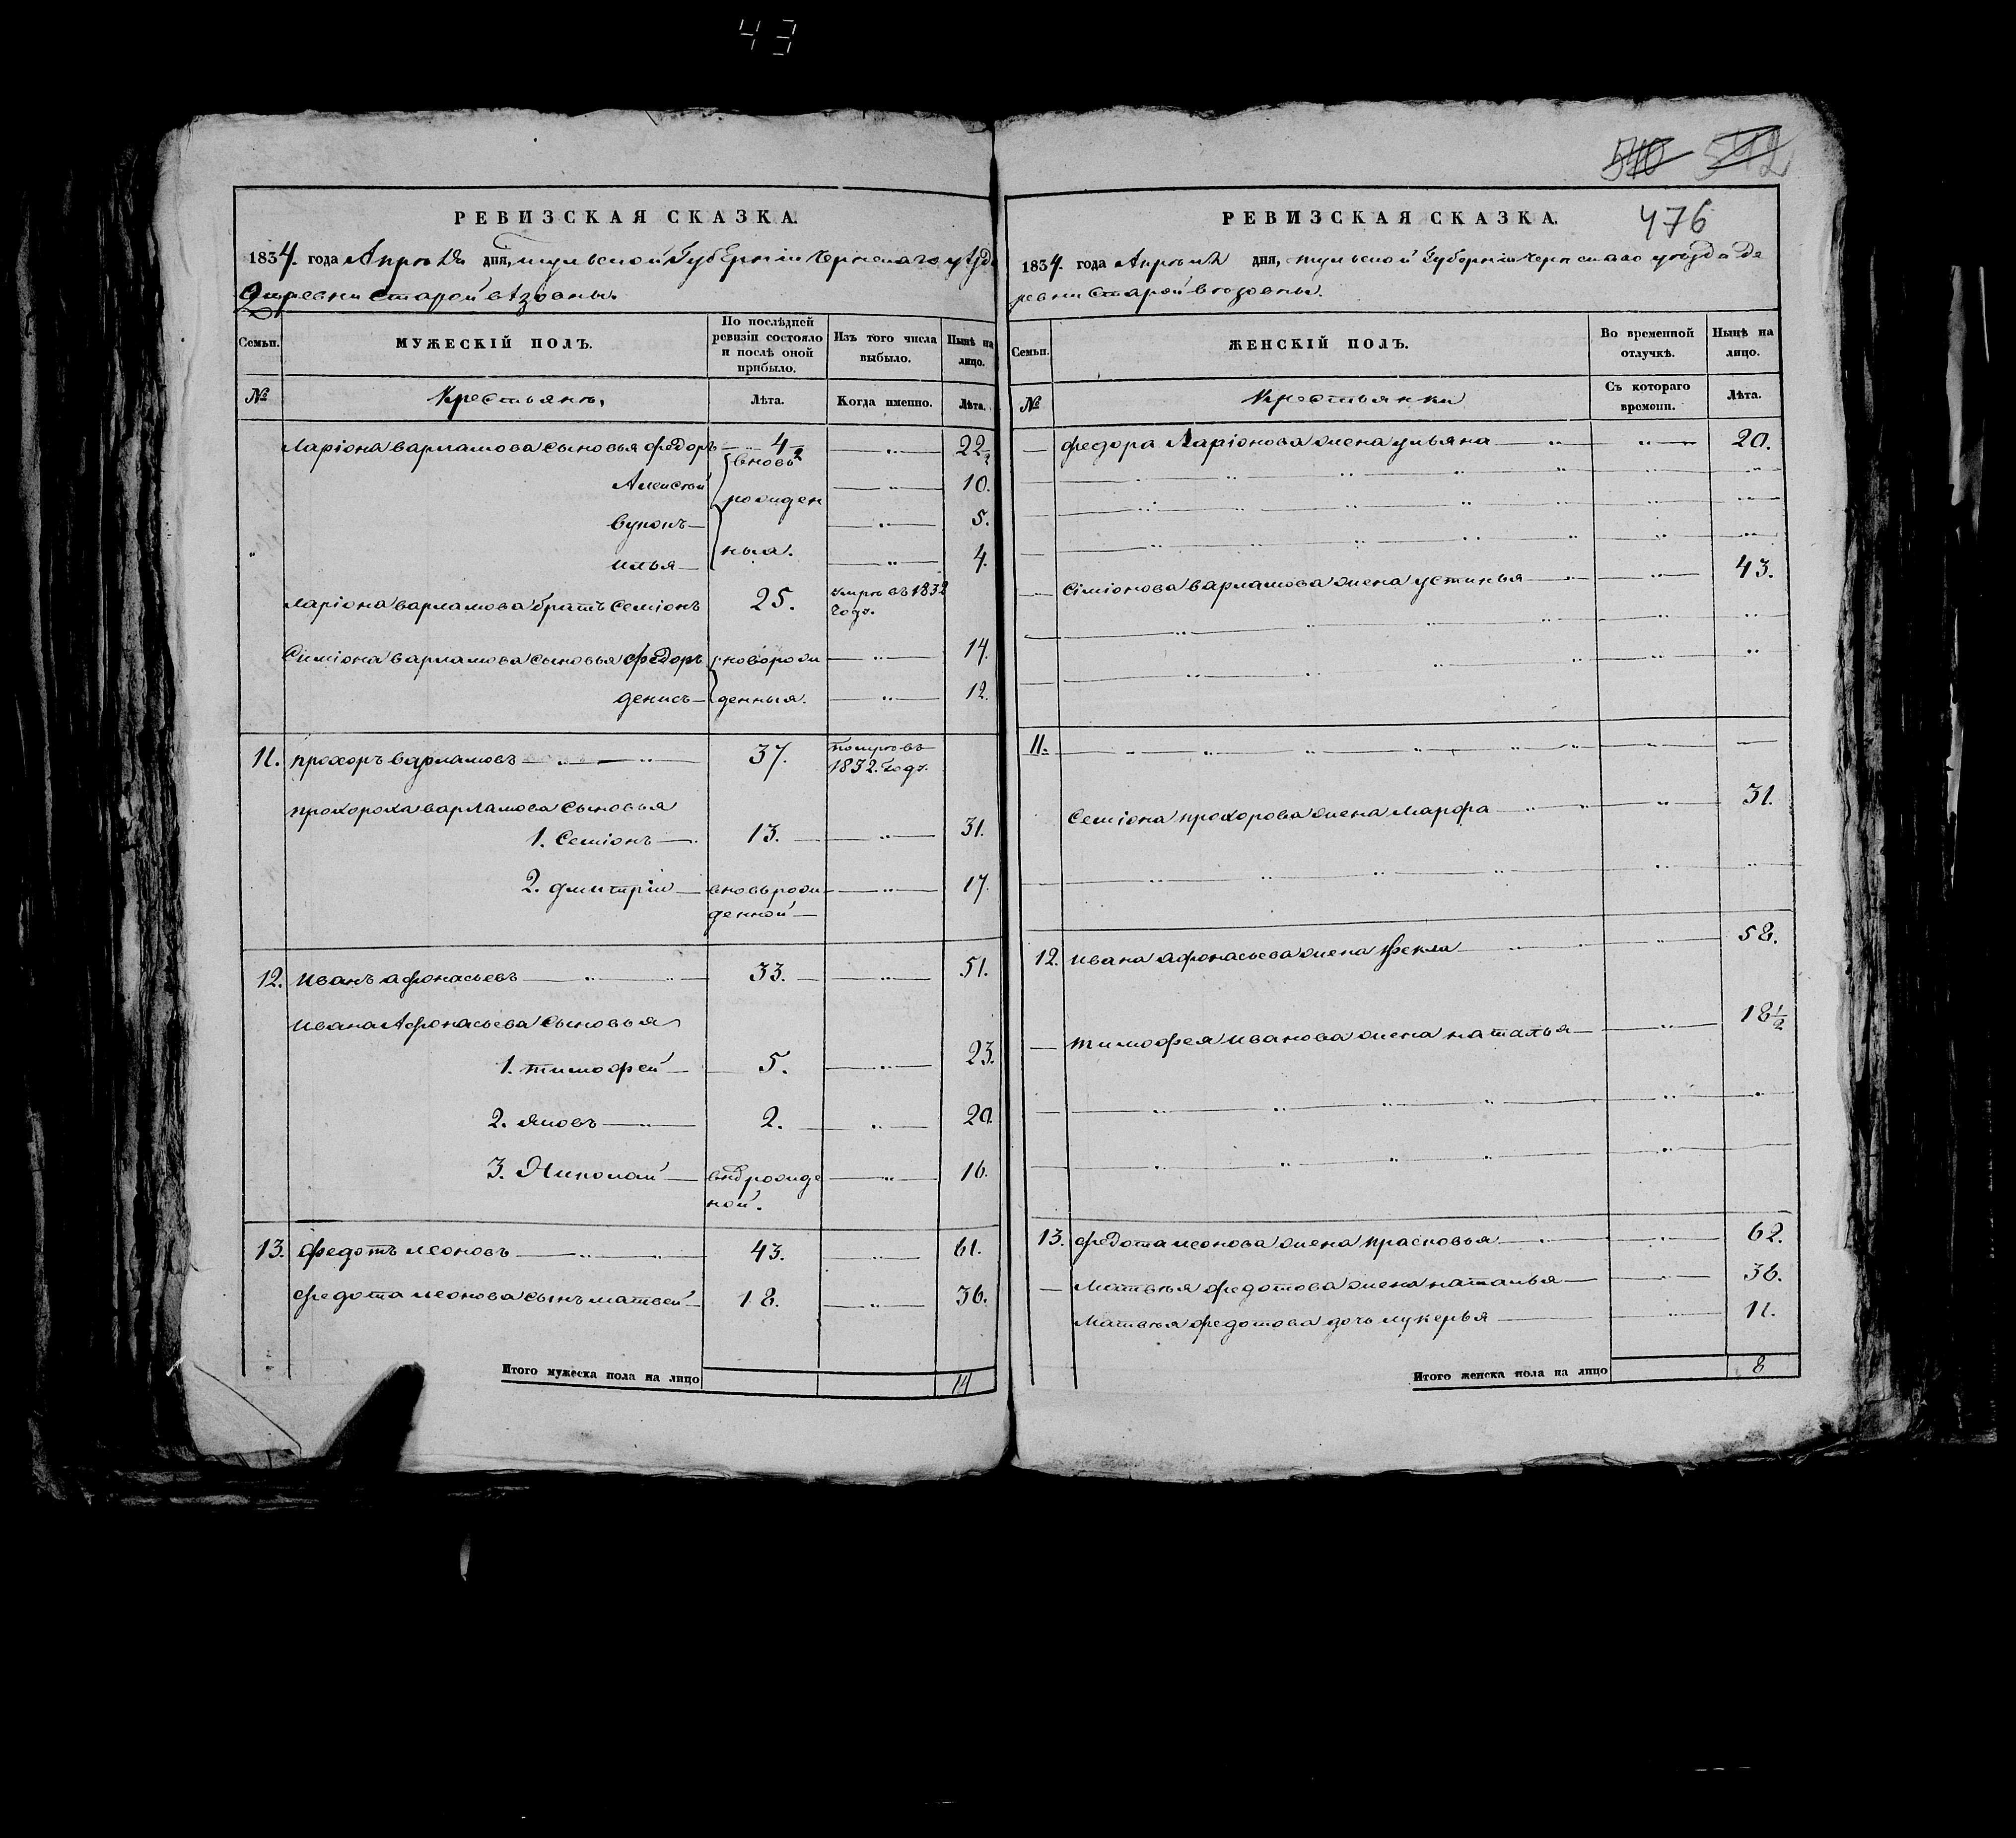 43
540 542
РЕВИЗСКАЯ СКАЗКА.
1834. года Апреля дня, тульской Губерніи чернскаго уѣзда
Деревни Старой вѣзовны.
Семьи.
МУЖЕСКІЙ ПОЛЪ.
По послѣдней ревизіи состояло и послѣ оной прибыло.
Изъ того числа выбыло.
Нынѣ на лицо.
№
Крестьянъ,
Лѣта.
Когда именно.
Лѣта.
Ларіона варламова сыновья федоръ 4 1/2 22 1/2
Алексѣй вновь 10.
вуколъ рожден 5.
илья ныя. 4.
Ларіона варламова братъ Семіонъ 25. умре въ 1832 Году.
Симіона варламова сыновья федоръ новорож 14.
денисъ денныя. 12.
11. прохоръ варламовъ 37. помре въ 1832. Году.
прохороха варламова сыновья
1. Семіонъ 13. 31.
2. дмитрій вновьрож 17.
денной
12. Иванъ афонасьевъ 33. 51.
Ивана Афонасьева сыновья
1. тимофей 5. 23.
2. яковъ 2. 20.
3. Николай 16.
ной.
13. федотъ леоновъ 43. 61.
федота леонова сынъ матвей 18. 36.
Итого мужеска пола на лицо 14
РЕВИЗСКАЯ СКАЗКА. 476
1834. года Апреля дня, тульской Губерніи чернскаго уезда де
ревни Старой вюзовны.
Семьи.
ЖЕНСКІЙ ПОЛЪ.
Во временной отлучкѣ.
Нынѣ на лицо.
№
Крестьянки
Съ котораго времени.
Лѣта.
федора Ларіонова жена ульяна 20.
Сіміонова варламова жена устинья 43.
11.
Семіона прохорова жена марфа 31.
12. ивана афонасьева жена фекла 58.
тимофея иванова жена наталья 18 1/2
13. федота леонова жена прасковья 62.
Матвѣя федотова жена наталья 36.
Матвѣя федотова дочь лукерья 11.
Итого женска пола на лицо 8